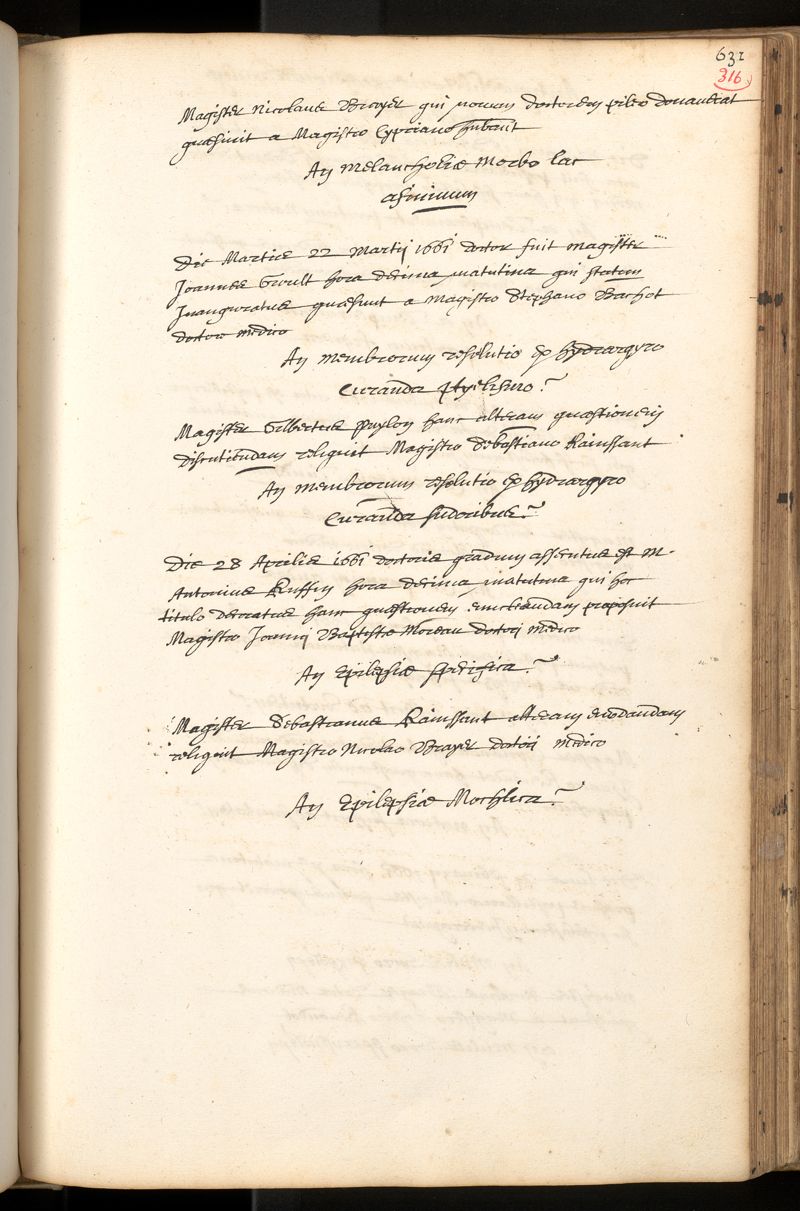 631
316
Magister Nicolaus Brayer qui novum doctorem pileo donaverat
quæsivit a Magistro Cypriano hubaut
An Melancholiæ Morbo lac
asininum
Die Martis 22 Martij 1661 doctor fuit magister
Joannes hora decima matutina qui statim
Inauguratus quæsivit a magistro Stephano Bachot
doctore medico
An membrorum resolutio ex hydrargyro
Curanda ptyelismo?
Magister Gilbertus Puylon hanc alteram quæstionem
discutiendam reliquit Magistro Sebastiano Rainssant
An membrorum resolutio ex hydrargyro
Curanda sudoribus?
Die 28 Aprilis 1661 doctoris gradum assecutus est M.
Antonius Ruffin hora decima matutina qui hoc
titulo decoratus hanc quæstionem enucleandam proposuit
Magistro Joanni Baptistæ Moreau doctori medico
An Epilepsiæ specifica?
Magister Sebastianus Rainssant alteram enodandam
reliquit Magistro Nicolao Brayer doctori medico
An Epilepsiæ Mochlica?